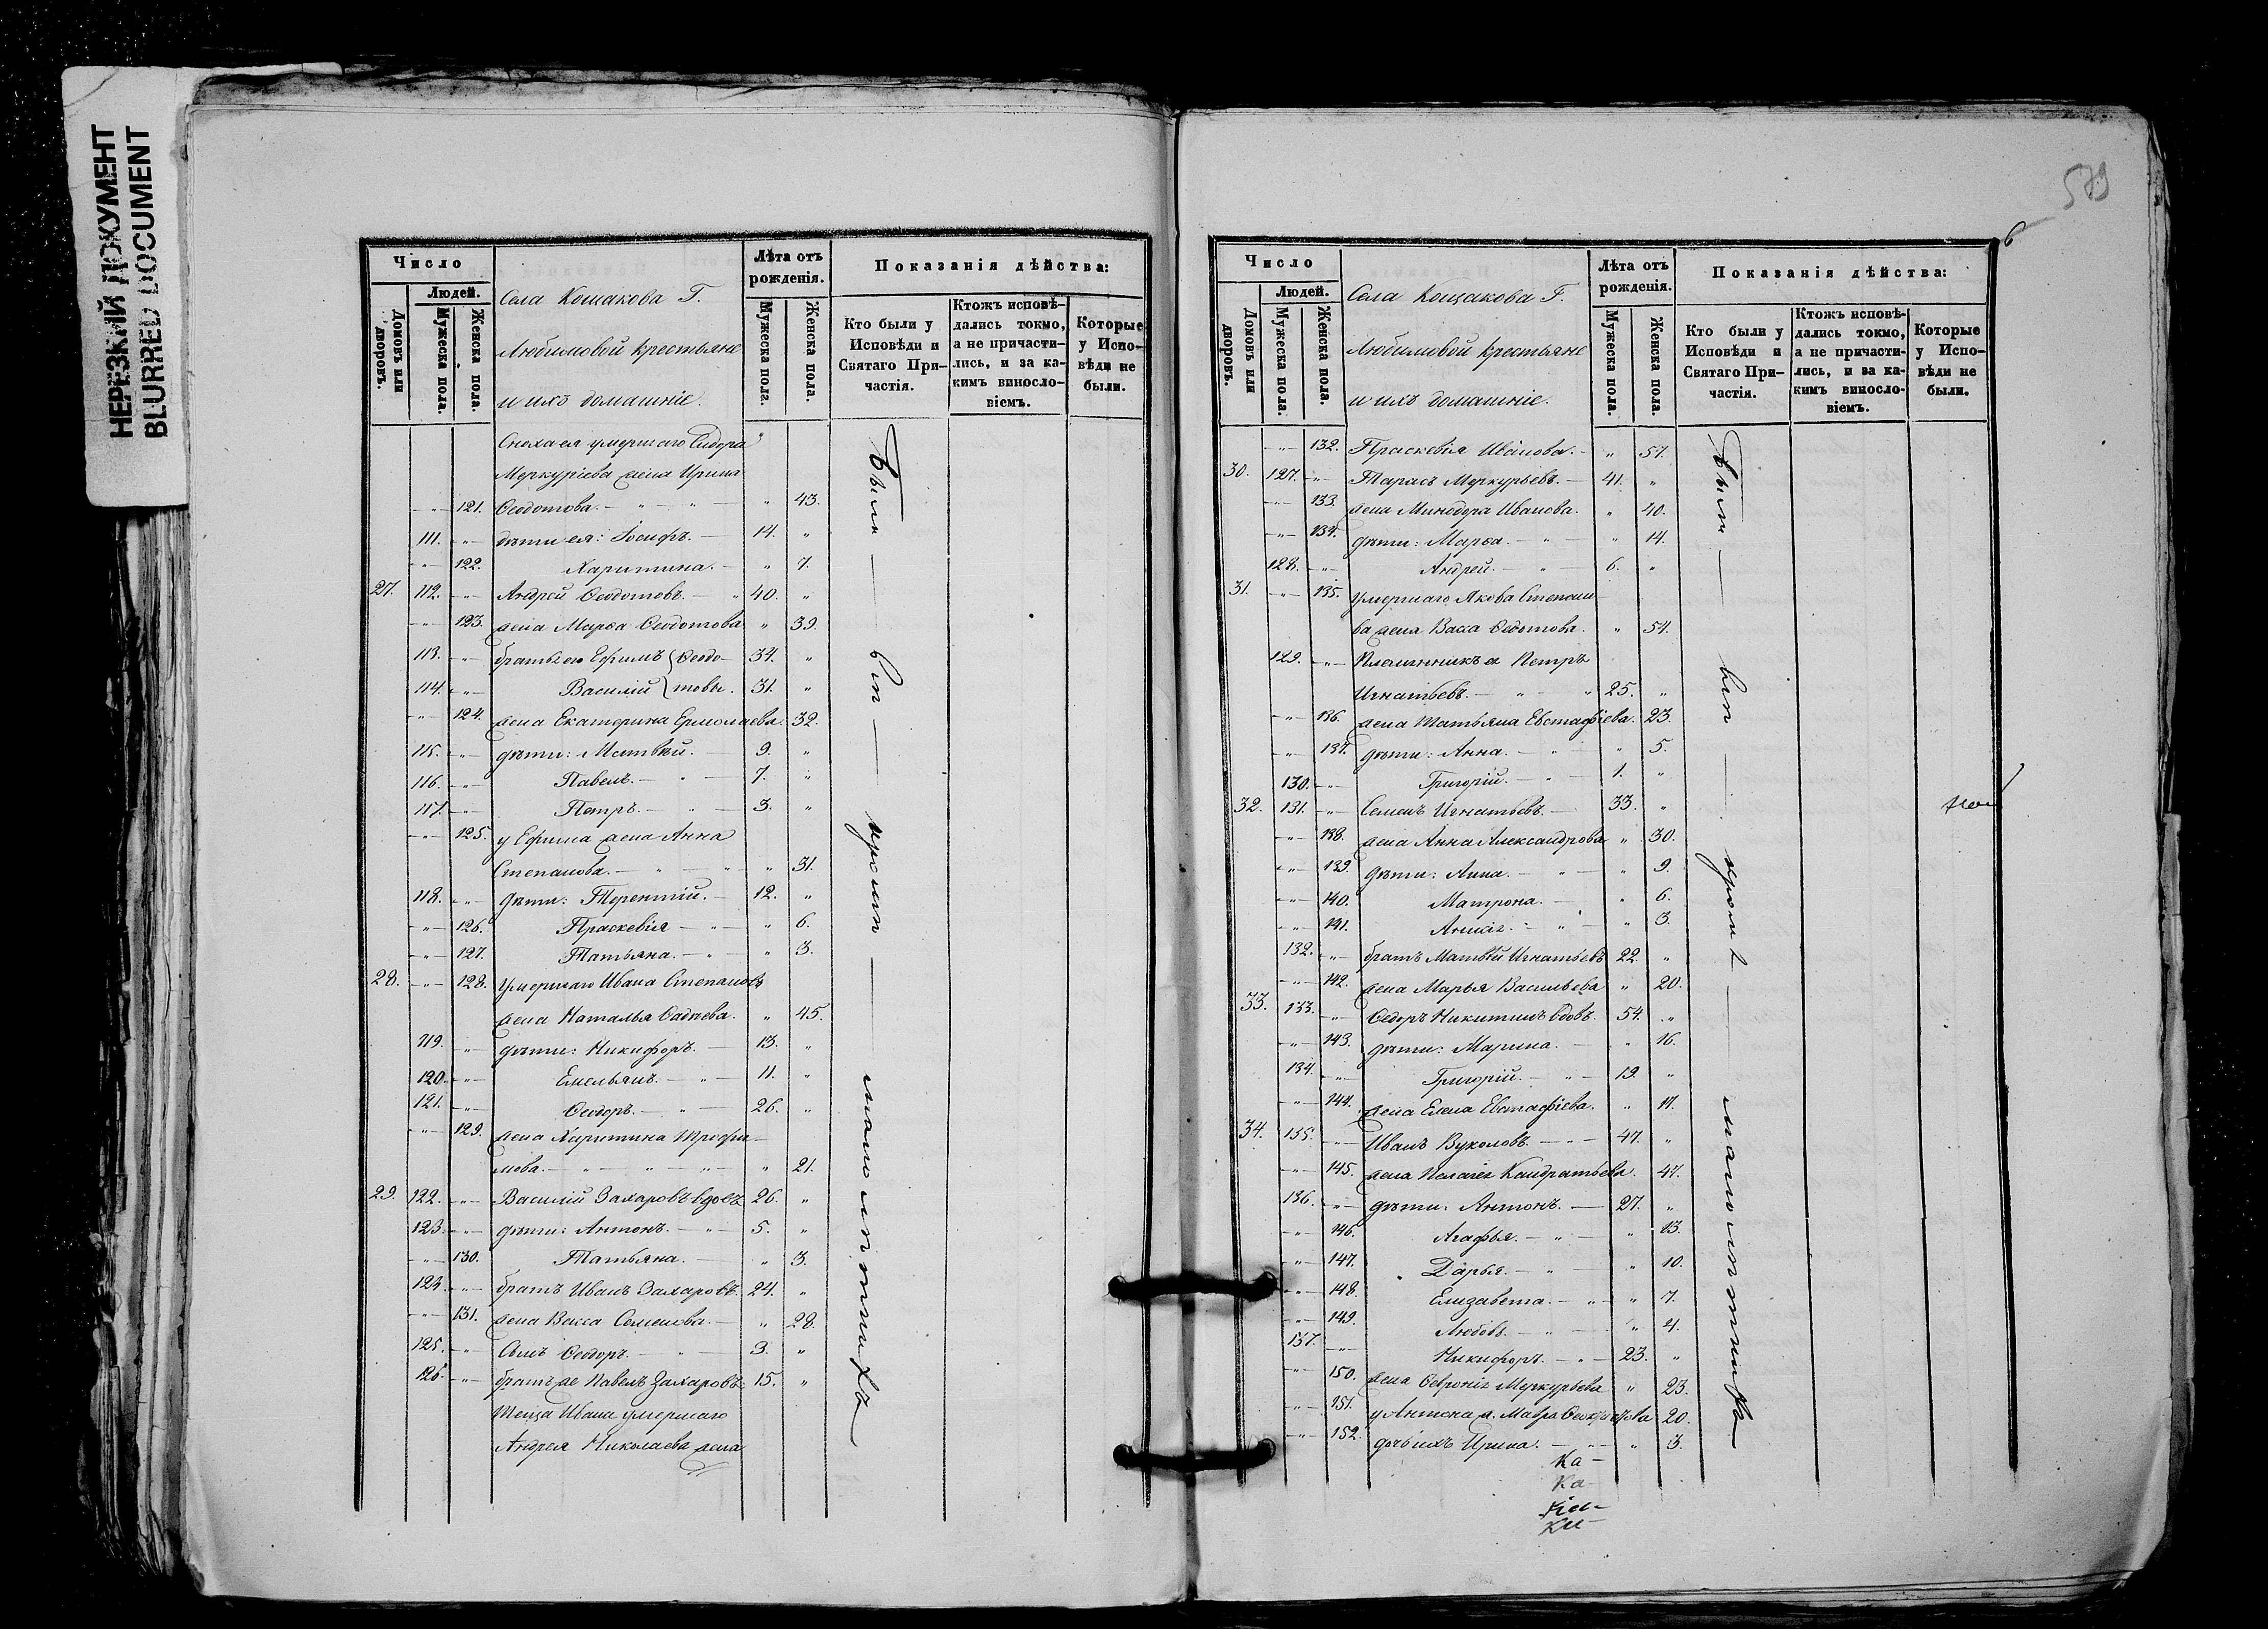 НЕРЕЗКИЙ ДОКУМЕНТ
BLURRED DOCUMENT
Число
Людей.
Домовъ или дворовъ.
Мужеска пола.
Женска пола.
Села Кощакова Г.
Любимовой крестьяне
и ихъ домашніе.
Лѣта отъ рожденія.
Мужеска пола.
Женска пола.
Показанія дѣйства:
Кто были у Исповѣди и Святаго При-частія.
Ктожъ исповѣ-дались токмо, а не причасти-лись, и за ка-кимъ виносло-віемъ.
Которые у Испо-вѣди не были.
Сноха ея умершаго Сидора
Меркуріева жена Ирина
-"- 121. Ѳеодотова. - " - " - " 43.
111. -"- дѣти ея: Іосифъ. - 14. "
-"- 122. Харитина. - " 7.
27. 112. -"- Андрей Ѳеодотовъ. - " 40. "
-"- 123. жена Марѳа Ѳеодотова " 39.
113. -"- братья его Ефимъ { Ѳеодо- 34. "
114. -"- Василій } товы. 31. "
-"- 124. жена Екатерина Ермолаева. 32.
115. -"- дѣти: Матвѣй. - 9. "
116. -"- Павелъ. - " - 7. "
117. -"- Петръ. - " - 3. "
-"- 125. у Ефима жена Анна
Степанова. - " - " - " 31.
118. -"- дѣти: Терентій. - 12. "
-"- 126. Праскевія - " - " 6.
-"- 127. Татьяна. - " - " 3.
28. -"- 128. умершаго Ивана Степановъ
жена Наталья Ѳадѣева. " 45.
119. -"- дѣти: Никифоръ. - 13. "
120. -"- Емельянъ. - " - 11. "
121. -"- Ѳеодоръ. - " - 26. "
-"- 129. жена Харитина Трофи-
мова. - " - " - " - " 21.
29. 122. -"- Василій Захаровъ вдовъ 26. "
123. -"- дѣти: Антонъ. - " - 5. "
-"- 130. Татьяна. - " 3.
123. -"- братъ Иванъ Захаровъ. 24. "
-"- 131. жена Васса Семенова. - " 28.
125. -"- Сынъ Ѳеодоръ. - " - 3. "
126. -"- братъ же Павелъ Захаровъ 15. "
Теща Ивана умершаго
Андрея Николаева жена
Были — вси — кромѣ — малолѣтнихъ
579
6
Число
Людей.
Домовъ или дворовъ.
Мужеска пола.
Женска пола.
Села Кощакова Г.
Любимовой крестьяне
и ихъ домашніе.
Лѣта отъ рожденія.
Мужеска пола.
Женска пола.
Показанія дѣйства:
Кто были у Исповѣди и Святаго При-частія.
Ктожъ исповѣ-дались токмо, а не причасти-лись, и за ка-кимъ виносло-віемъ.
Которые у Испо-вѣди не были.
-"- 132. Праскевія Иванова. - " 57.
30. 127. -"- Тарасъ Меркурьевъ. - 41. "
-"- 133. жена Минодора Иванова. " 40.
-"- 134. дѣти: Марѳа. - " - " 14.
128. -"- Андрей. - " - 6. "
31. -"- 135. умершаго Якова Степано
ва жена Васса Ѳедотова. " 54.
129. -"- Племянникъ ея Петръ
Игнатьевъ. - " - " 25. "
-"- 136. жена Татьяна Евстафіева. 23.
-"- 137. дѣти: Анна. - " - " 5.
130. -"- Григорій. - " - 1. "
32. 131. -"- Семенъ Игнатьевъ. - 33. "
-"- 138. жена Анна Александрова " 30.
-"- 139. дѣти: Анна. - " - " 9.
-"- 140. Матрона. - " 6.
-"- 141. - " - " 3.
132. -"- братъ Матвѣй Игнатьевъ 22. "
-"- 142. жена Марья Васильева " 20.
33. 133. -"- Ѳедоръ Никитинъ вдовъ. 54. "
-"- 143. дѣти: Марина. - " 16.
134. -"- Григорій. - " - 19. "
-"- 144. жена Елена Евстафіева. " 17.
34. 135. -"- Иванъ Вуколовъ. - " - 47. "
-"- 145. жена Пелагія Кандратьева. 47.
136. -"- дѣти: Антонъ. - 27. "
-"- 146. Агафья. - " - " 13.
-"- 147. Дарья. - " - " 10.
-"- 148. Елизавета. - " - " 7.
-"- 149. Любовь. - " - " 4.
137. -"- Никифоръ. - " - 23. "
-"- 150. жена Ѳевронія Меркурьева " 23.
-"- 151. у Антона ж. Мавра 20.
-"- 152. дочь ихъ Ирина. - " - " 3.
Были — вси — кромѣ — малолѣтнихъ
ка-
ка-